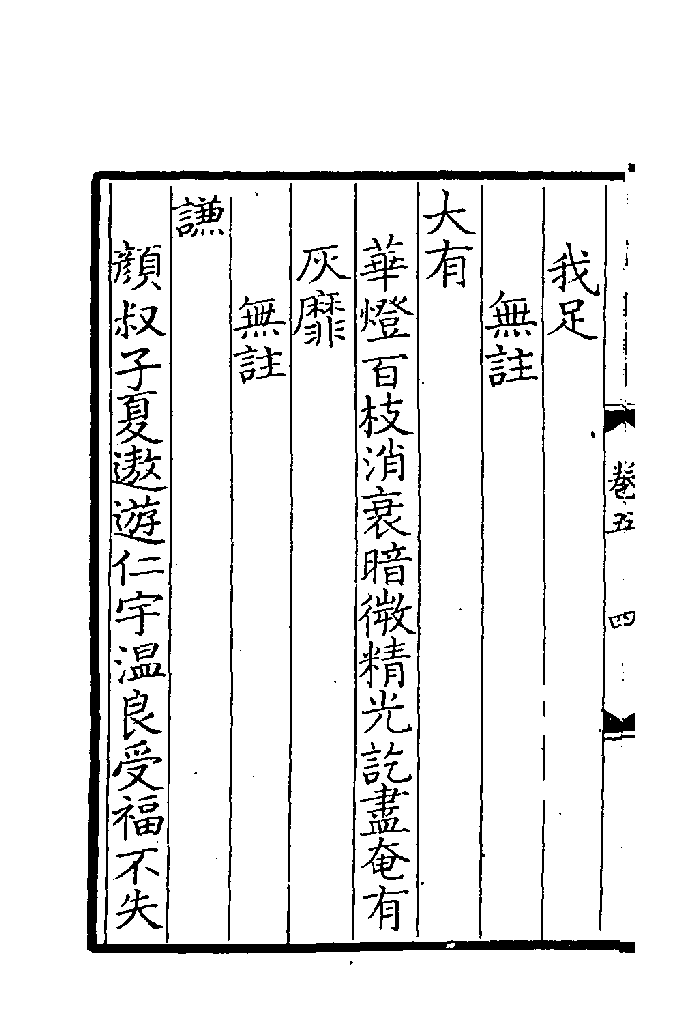 卷五 四
我足
無註
大有
華燈百枝消衰暗微精光訖盡奄有
灰靡
無註
謙
顏叔子夏遨遊仁宇温良受福不失